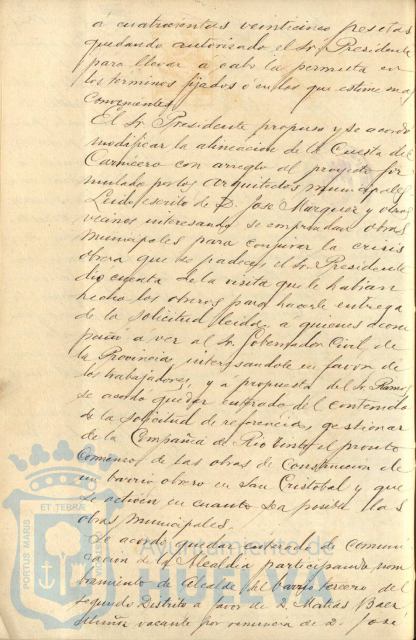 á cuatrocientas veinticinco pesetas
quedando autorizado el Sr. Presidente
para llevar á cabo la permuta en
los terminos fijados ó en los que estime mas
convenientes.
El Sr. Presidente propuso y se acordó
modificar la alineacion de la Cuesta del
Carnicero con arreglo al proyecto for
mulado por los Arquitectos municipales
Leido escrito de D. Jose Marquez y otros
vecinos interesando se emprendan obras
municipales para conjurar la crisis
obrera que se padece, el Sr. Presidente
dio cuenta de la visita que le habian
hecho los obreros para hacerle entrega
de la solicitud leida, á quienes acom
pañó a ver al Sr. Gobernador Civil de
la Provincia, interesandole en favor de
los trabajadores, y a propuesta del Sr. Ramos
se acordó quedar enterado del contenido
de la solicitud de referencia, gestionar
de la Compañia de Rio Tinto el pronto
comienzo de las obras de Construccion de
un barrio obrero en San Cristobal y que
se activen en cuanto se pueda las
obras municipales.
Se acordó quedar enterado de comuni
cacion de la Alcaldia participando nom
bramiento de Alcalde del barrio tercero del
segundo Distrito a favor de D. Matias Baez
vacante por renuncia de D. Jose
PORTUS MARIS
ET TERRA
Ayuntamiento de
HUELVA